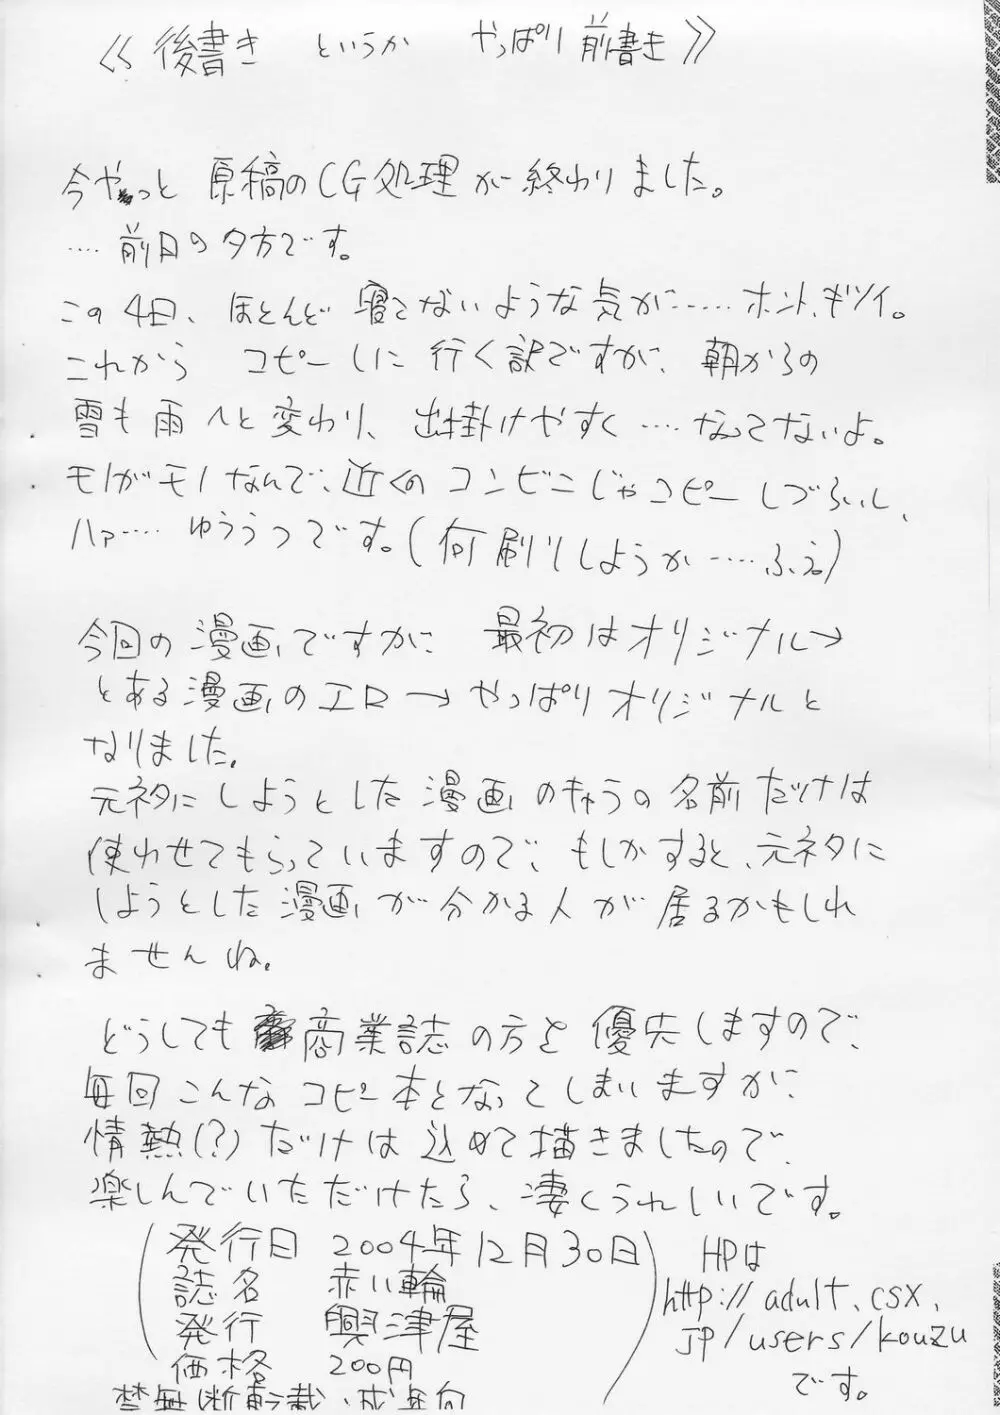 ≪後書き というか やっぱり前書き≫
今やっと 原稿のCG処理が終わりました。
‥‥前日の夕方です。
この4日、ほとんど寝てないような気が‥‥‥ホント、キツイ。
これから コピーしに行く訳ですが、朝からの
雪も雨へと変わり、出掛けやすく‥‥なってないよ。
モノがモノなんで、近くのコンビニじゃコピーしづらいし、
ハァ‥‥ゆううつです。(何刷りしようか‥‥‥ふぇ。)
今回の漫画ですが、最初はオリジナル→
とある漫画のエロ→やっぱりオリジナルと
なりました。
元ネタにしようとした漫画のキャラの名前だけは
使わせてもらっていますので、もしかすると、元ネタに
しようとした漫画が分かる人が居るかもしれ
ませんね。
どうしても商業誌の方を優先しますので、
毎回こんなコピー本となってしまいますが、
情熱(?)だけは込めて描きましたので、
楽しんでいただけたら、凄くうれしいです。
(発行日 2004年12月30日
誌名 赤い輪
発行 興津屋
価格 200円)
禁無断転載、成年向
HPは
http://adult.csx.
jp/users/kouzu
です。